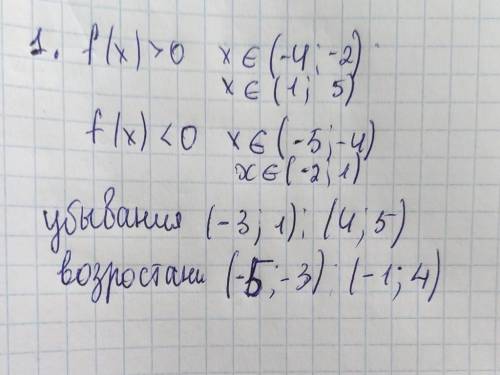 1. f(x)>0 x ∈ (-4; -2)
x ∈ (1; 5)
f(x)<0 x ∈ (-5; -4)
x ∈ (-2; 1)
убывания (-3; 1); (4; 5)
возростани (-5; -3); (-1; 4)